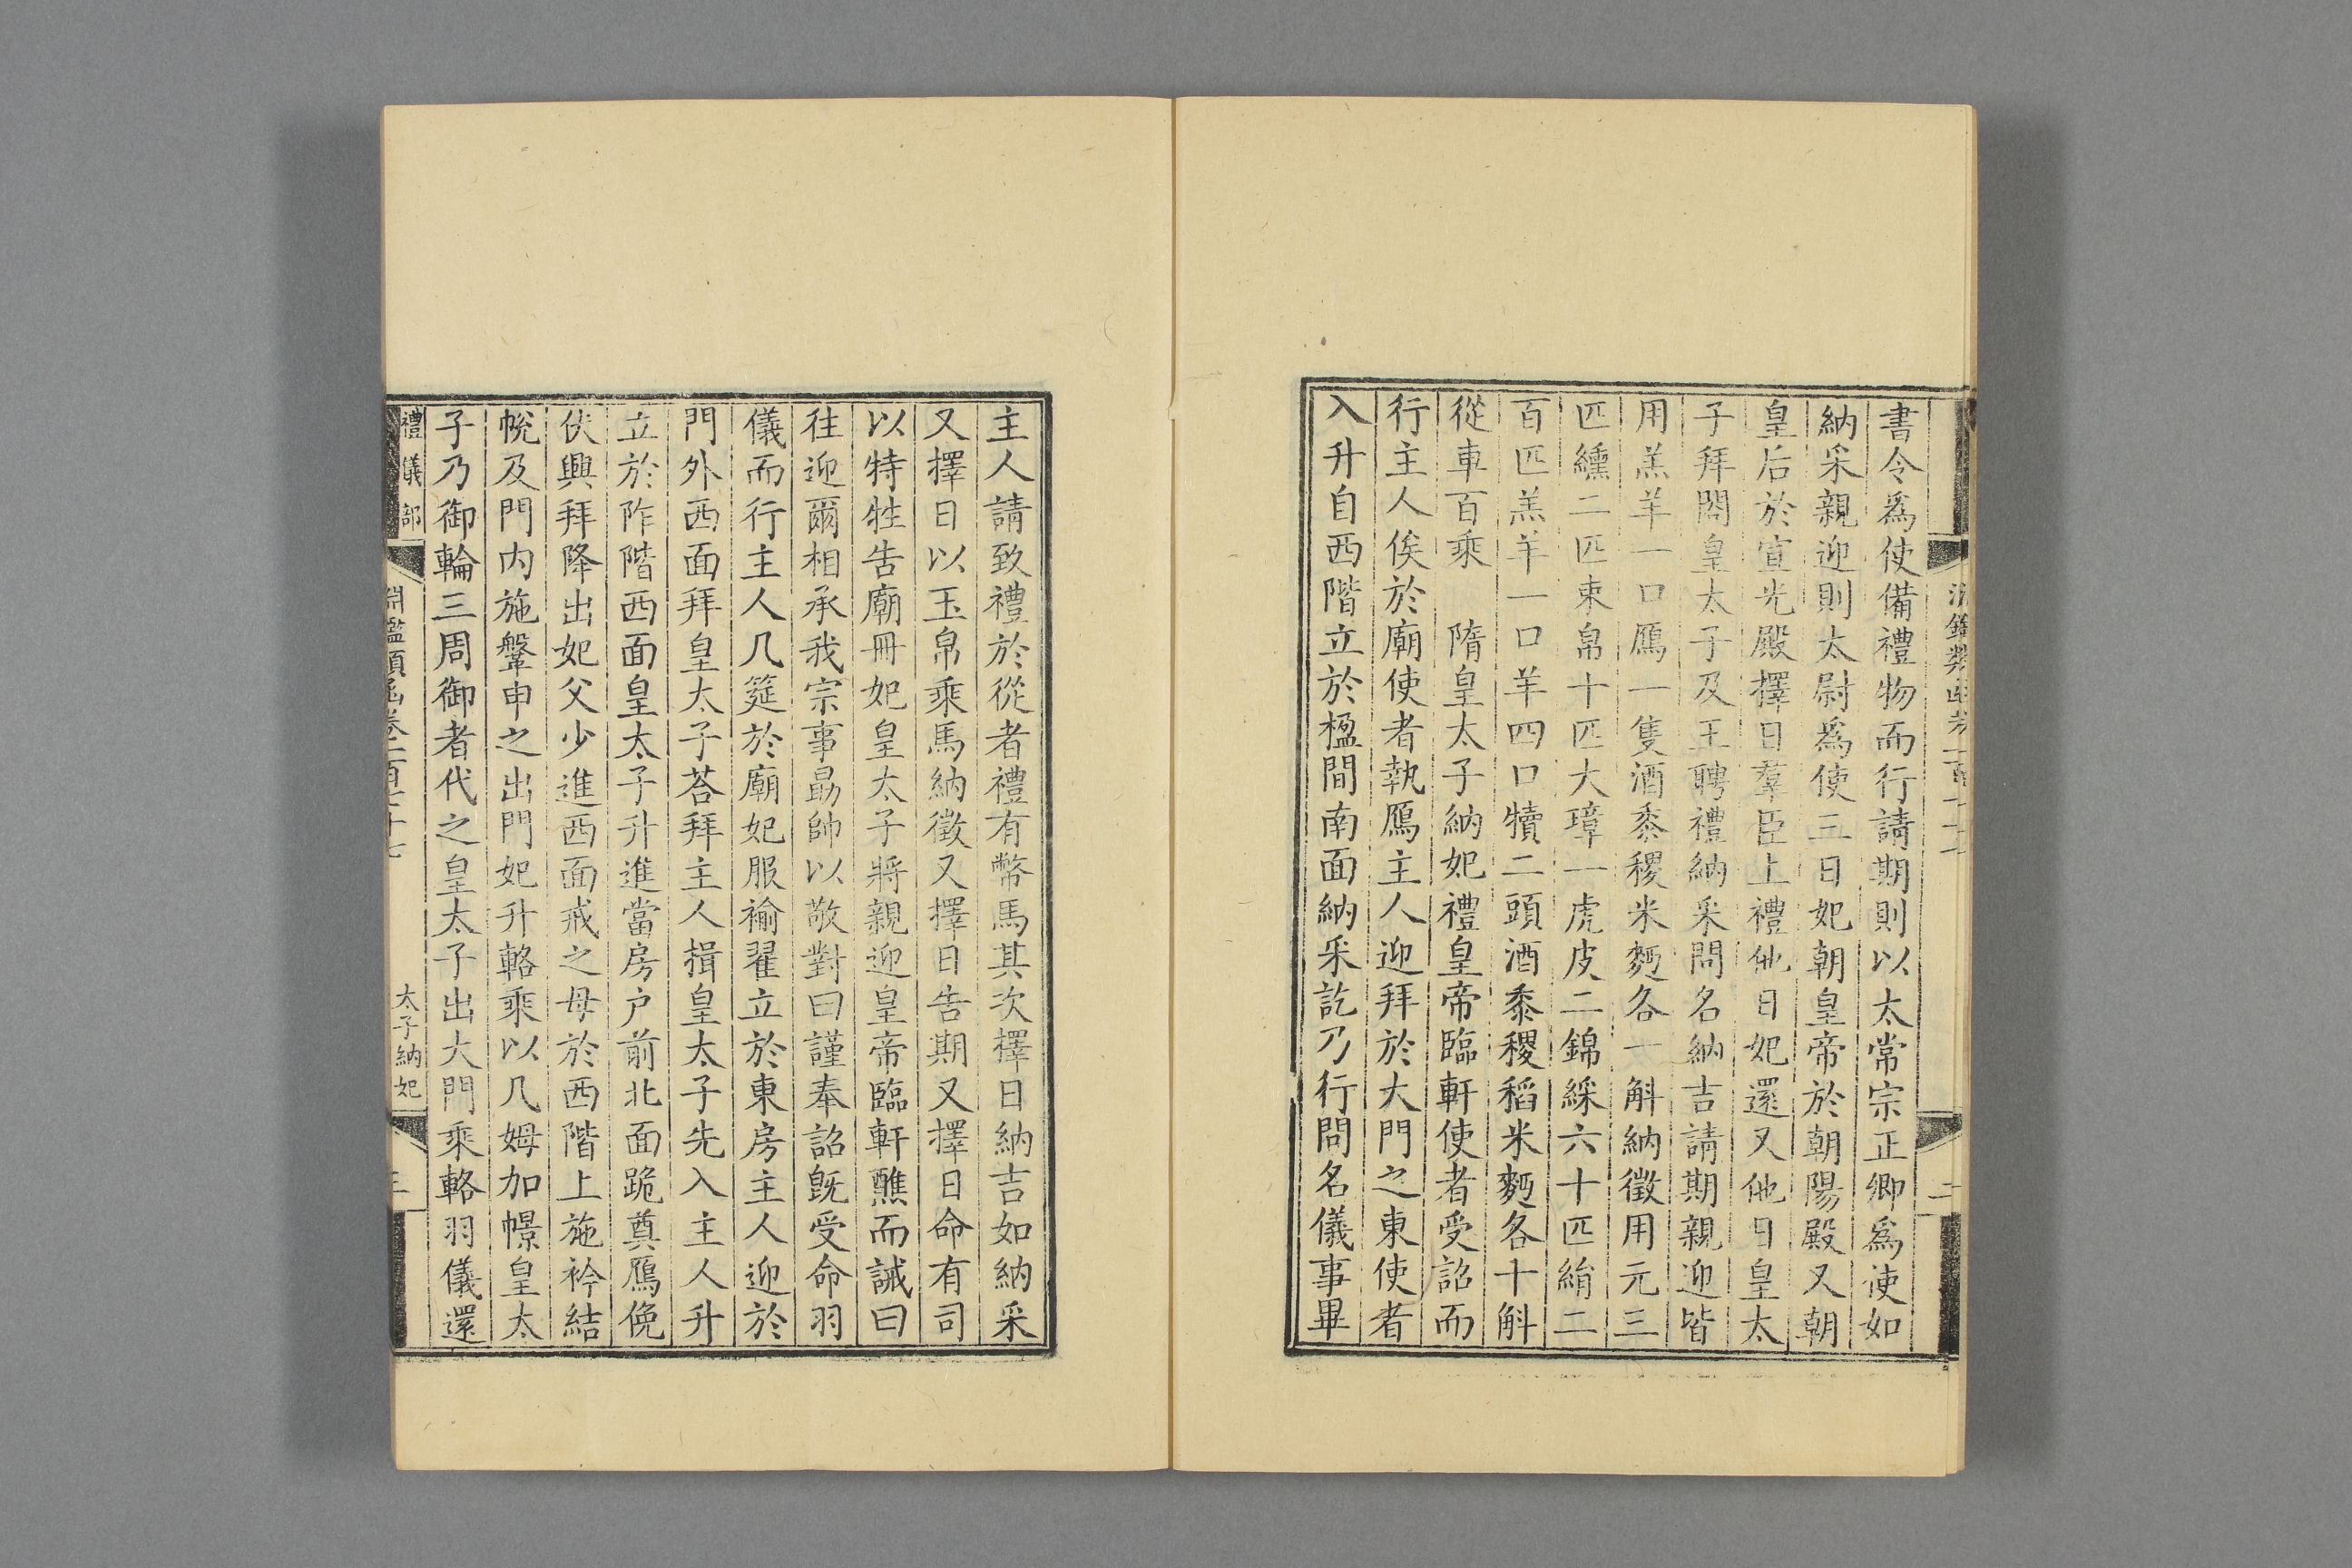 書令爲使備禮物而行請期則以太常宗正卿爲使如
納采親迎則太尉爲使三日妃朝皇帝於朝陽殿又朝
皇后於宣光殿擇日羣臣上禮他日妃還又他日皇太
子拜閤皇太子及王聘禮納采問名納吉請期親迎皆
用羔羊一口鴈一隻酒黍稷米麫各一斛納徵用元三
匹纁二匹束帛十匹大璋一虎皮二錦綵六十匹絹二
百匹羔羊一口羊四口犢二頭酒黍稷稻米麫各十斛
從車百乘　隋皇太子納妃禮皇帝臨軒使者受詔而
行主人俟於廟使者執鴈主人迎拜於大門之東使者
入升自西階立於楹間南面納采訖乃行問名儀事畢
主人請致禮於從者禮有幣馬其次擇日納吉如納采
又擇日以玉帛乘馬納徵又擇日告期又擇日命有司
以特牲告廟冊妃皇太子將親迎皇帝臨軒醮而誡曰
往迎爾相承我宗事勗帥以敬對曰謹奉詔旣受命羽
儀而行主人几筵於廟妃服褕翟立於東房主人迎於
門外西面拜皇太子荅拜主人揖皇太子先入主人升
立於阼階西面皇太子升進當房户前北面跪奠鴈俛
伏興拜降出妃父少進西面戒之母於西階上施衿結
帨及門内施鞶申之出門妃升輅乘以几姆加幜皇太
子乃御輪三周御者代之皇太子出大門乘輅羽儀還
禮儀部
淵鑑類函卷一百七十七
太子納妃